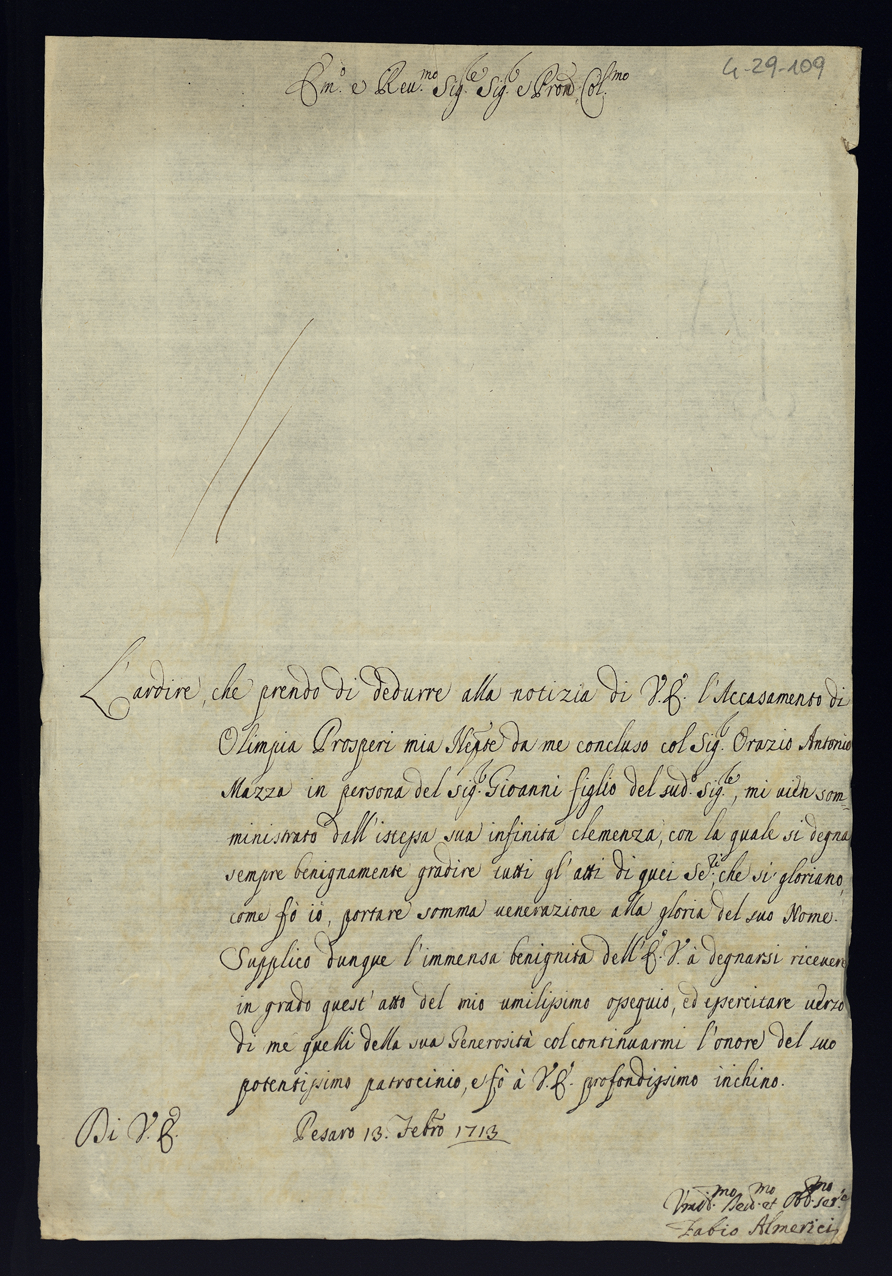 G-29-109
Em.º e Reu.mo Sig.re Sig.r e Pron Col.mo
L'ardire, che prendo di dedurre alla notizia di V. E. l'Accasamento di
Olimpia Prosperi mia Nepte da me concluso col Sig.r Orazio Antonio
Mazza in persona del Sig.r Gioanni figlio del sud.º Sig.re, mi vien som=
ministrato dall'istessa sua infinita clemenza, con la quale si degna
sempre benignamente gradire tutti gl'atti di quei Se.ri, che si gloriano,
come fò iò, portare somma venerazione alla gloria del suo Nome.
Supplico dunque l'immensa benignita dell'E. V. à degnarsi ricevere
in grado quest'atto del mio umilissimo ossequio, ed essercitare verzo
di me quelli della sua Generosità col continuarmi l'onore del suo
potentissimo patrocinio, e fò à V. E. profondissimo inchino.
Di V. E. Pesaro 13. Febro 1713
Vmil.mo Deu.mo et Obb.mo Ser.e
Fabio Almerici